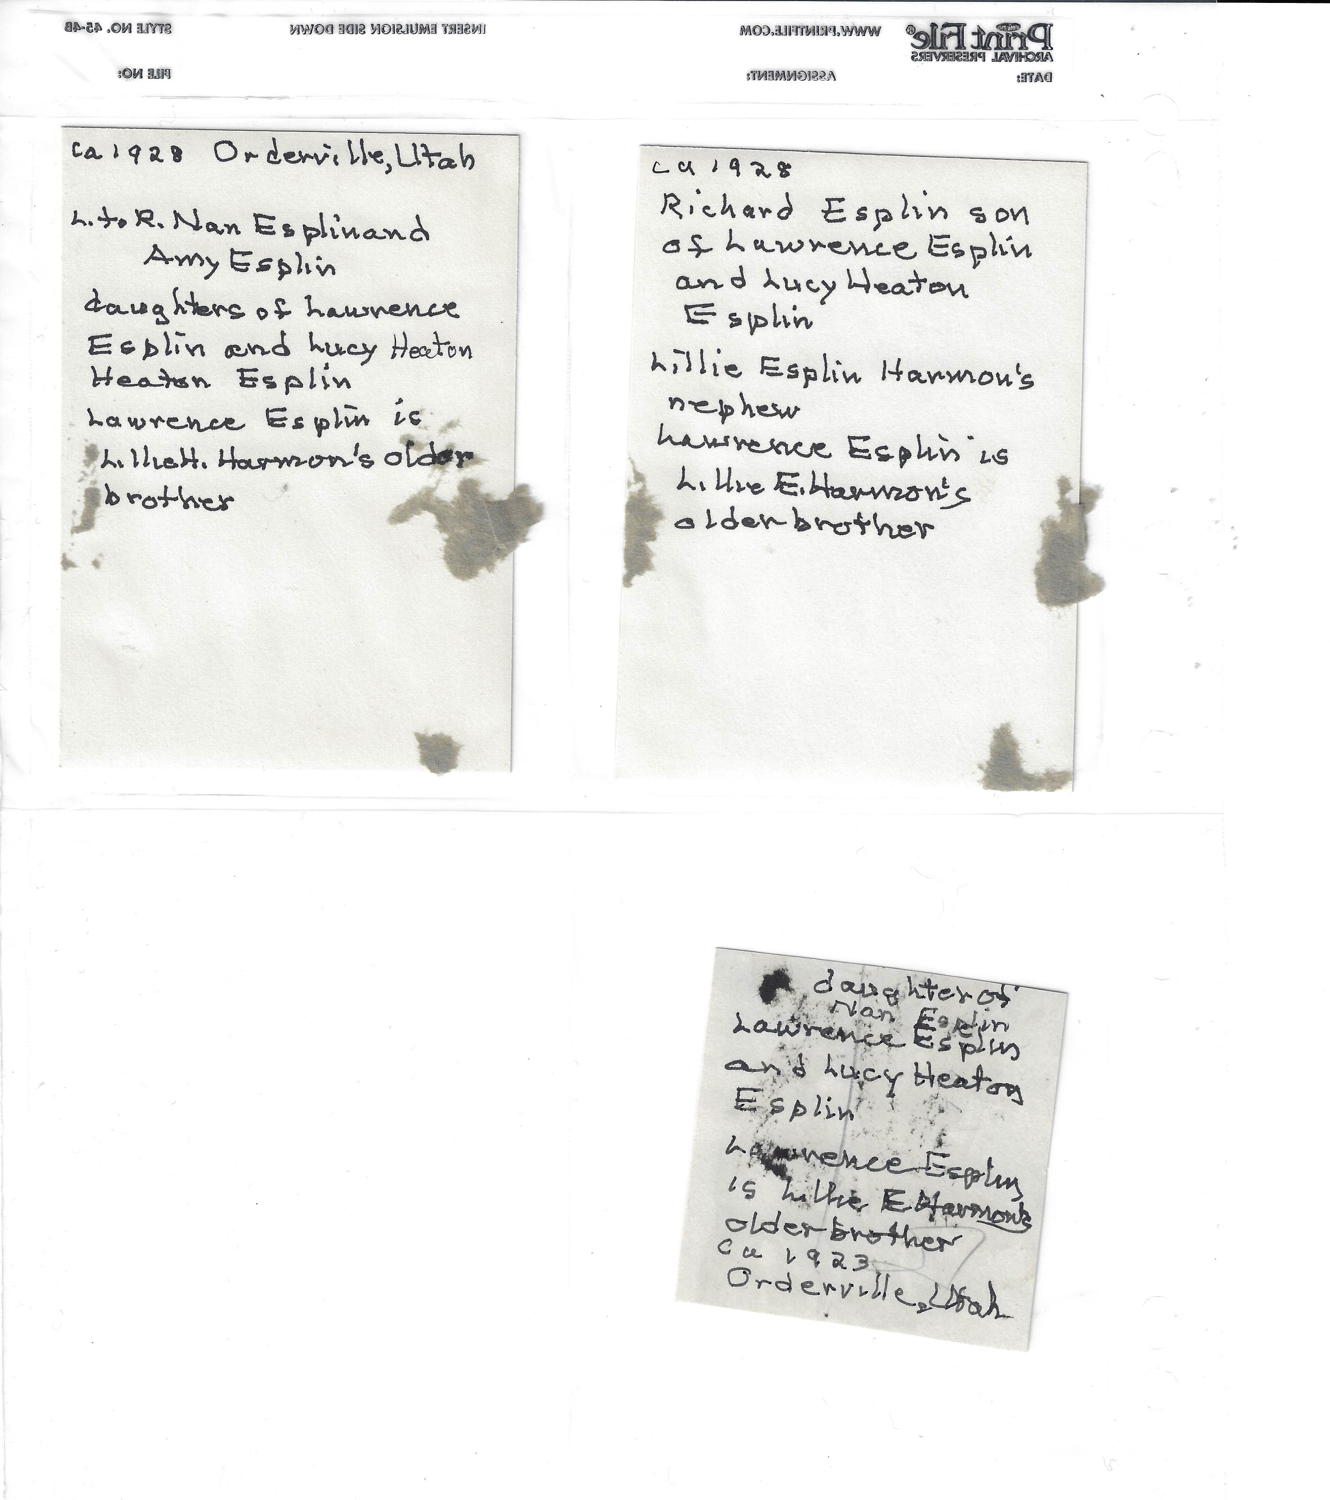 STYLE NO. 45-4B
INSERT EMULSION SIDE DOWN
WWW.PRINTFILE.COM
Print File®
ARCHIVAL PRESERVERS
FILE NO:
ASSIGNMENT:
DATE:
ca 1928 Orderville, Utah
L. to R. Nan Esplin and
Amy Esplin
daughters of Lawrence
Esplin and Lucy Heaton
Heaton Esplin
Lawrence Esplin is
Lillie H. Harmon's older
brother
ca 1928
Richard Esplin son
of Lawrence Esplin
and Lucy Heaton
Esplin
Lillie Esplin Harmon's
nephew
Lawrence Esplin is
Lillie E. Harmon's
older brother
daughter of
Nan Esplin
Lawrence Esplin
and Lucy Heaton
Esplin
Lawrence Esplin
is Lillie E Harmon's
older brother
ca 1923
Orderville, Utah